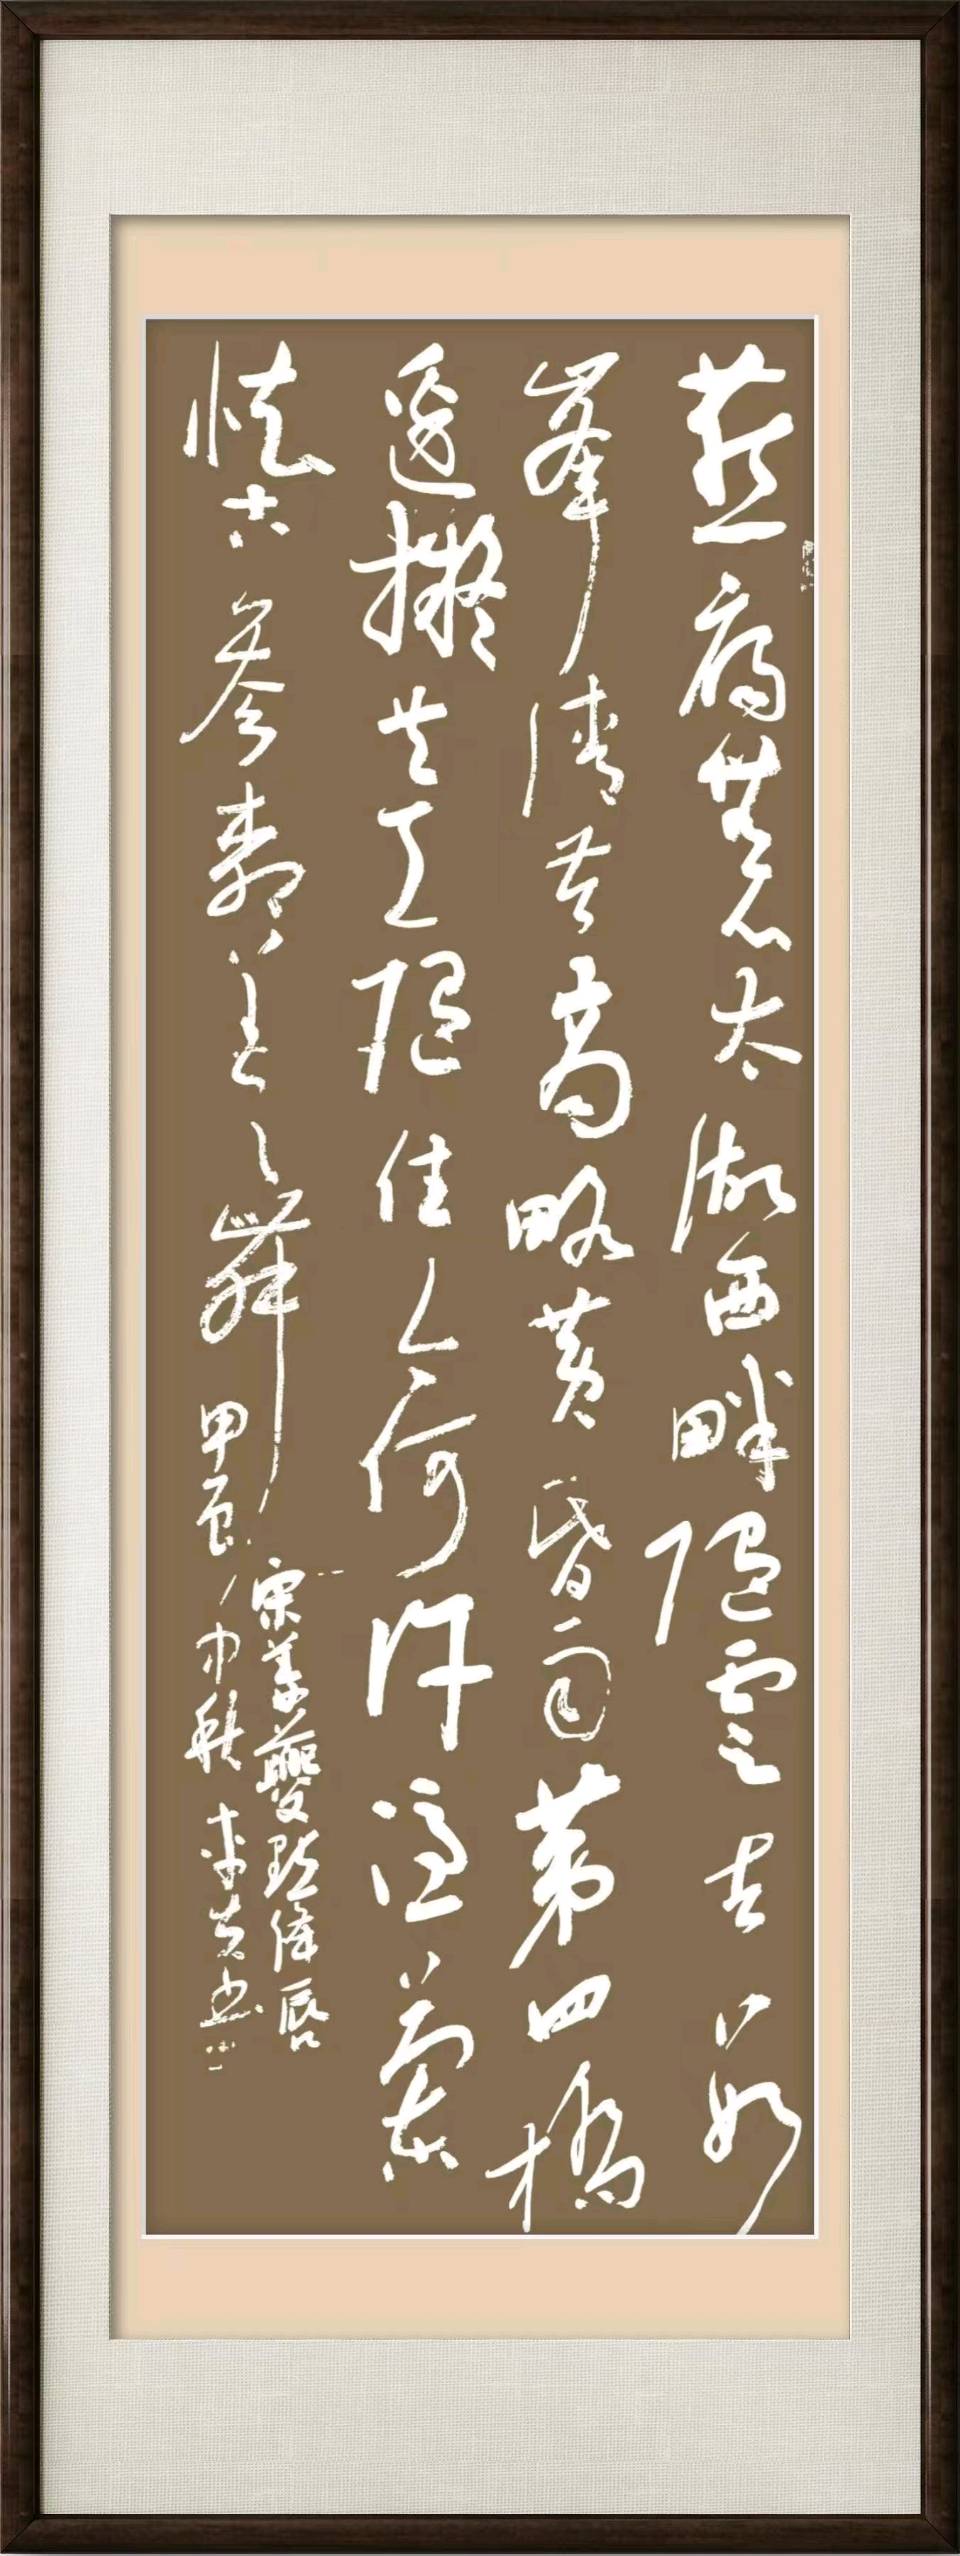 燕雁無心太湖西畔隨雲去數
峯清苦商略黃昏雨第四橋
邊擬共天隨住今何許憑闌
懷古殘柳參差舞
宋姜夔點絳唇
甲辰中秋李